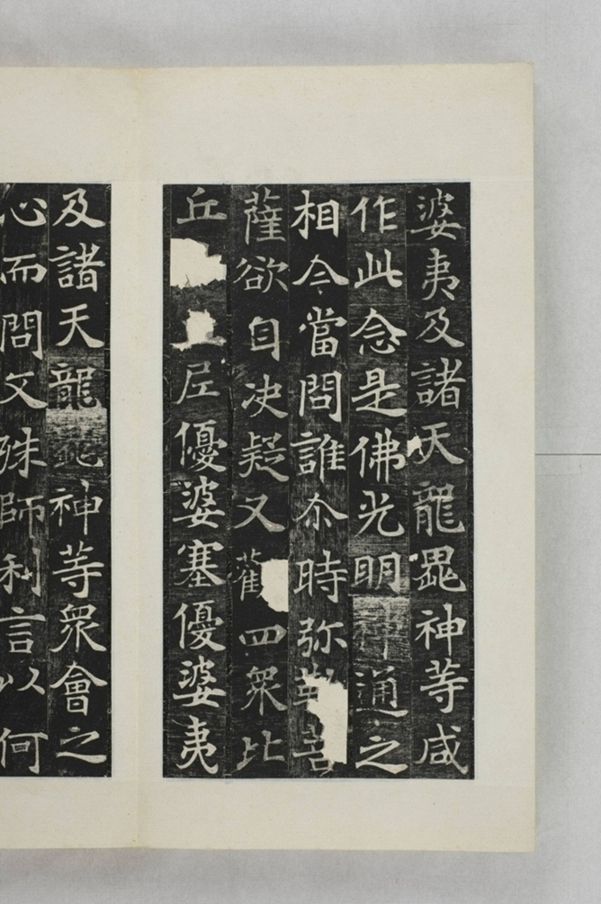 婆夷及諸天龍鬼神等咸
作此念是佛光明神通之
相今當問誰尒時弥勒菩
薩欲自决疑又觀四衆比
丘丘尼優婆塞優婆夷
及諸天龍鬼神等衆會之
心而問文殊師利言以何